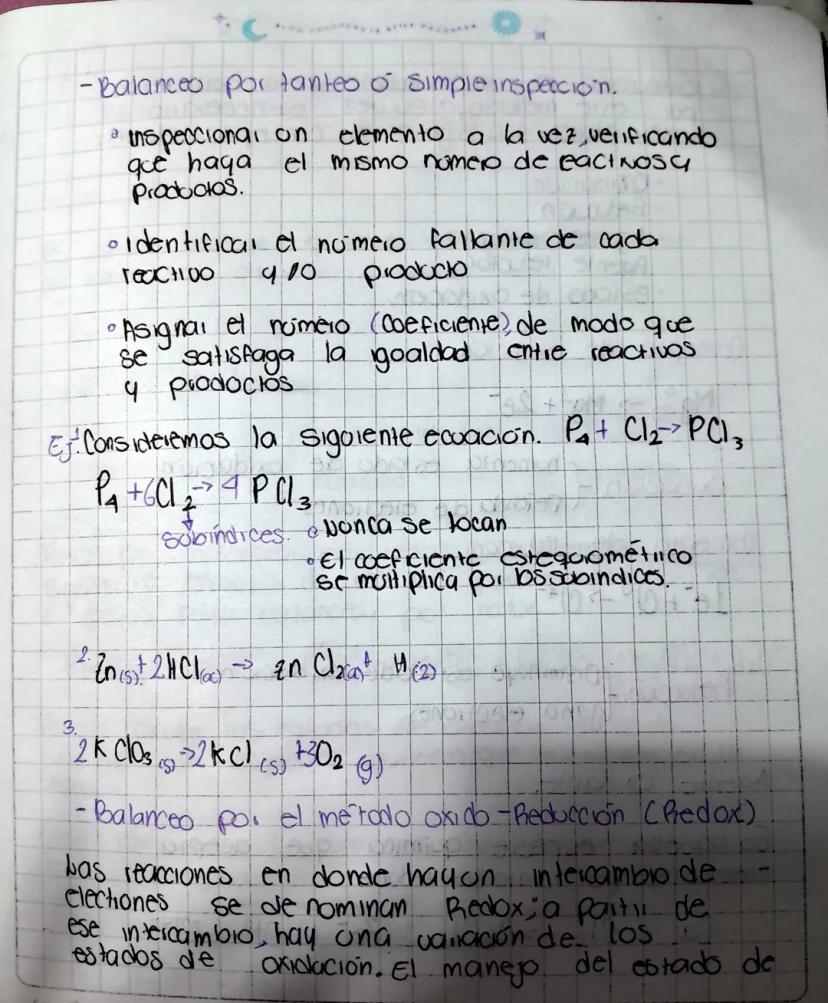 - Balanceo por tanteo o simple inspección.
• inspeccionar un elemento a la vez, verificando
que haya el mismo número de eactivos y
productos.
• Identificar el número faltante de cada
reactivo y/o producto
• Asignar el número (coeficiente), de modo que
se satisfaga la igualdad entre reactivos
y productos
Ej: 1. Consideremos la siguiente ecuación. P4 + Cl2 → PCl3
P4 + 6Cl2 → 4 PCl3
subíndices. • Nunca se tocan
• El coeficiente estequiométrico
se multiplica por los subíndices.
2. Zn(s) + 2HCl(ac) → Zn Cl2(a) + H(2)
3.
2K ClO3 (s) → 2KCl (s) + 3O2 (g)
- Balanceo por el método oxido - Reducción (Redox)
Las reacciones en donde hay un intercambio de -
electrones se denominan Redox; a partir de
ese intercambio, hay una variación de los
estados de oxidación. El manejo del estado de